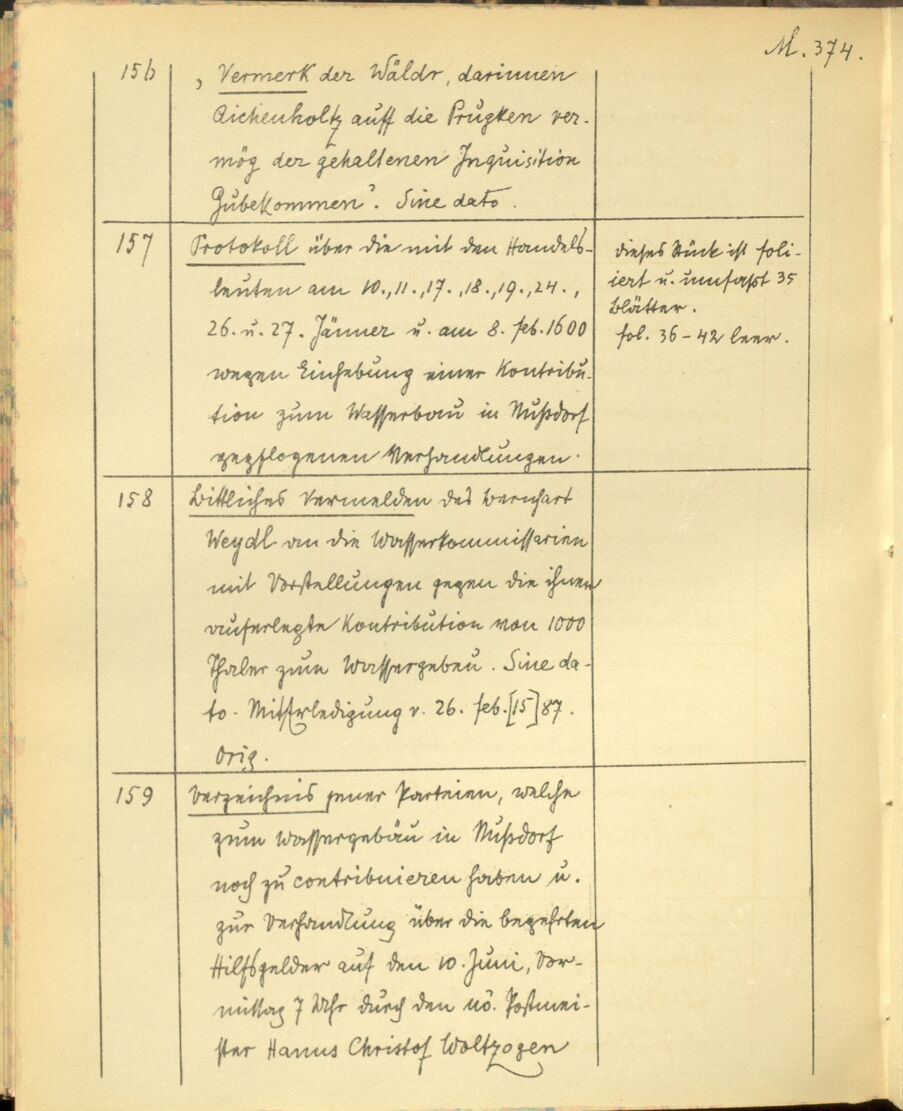 M. 374.
156 „Vermerk der Wäldr, darinnen
Aichenholtz auff die Prugken ver-
mög der gehaltenen Inquisition
Zubekommen". Sine dato.
157 Protokoll über die mit den Handels-
leuten am 10., 11., 17., 18., 19., 24.,
26. u. 27. Jänner u. am 8. Feb. 1600
wegen Einhebung einer Kontribu-
tion zum Wasserbau in Nußdorf
gepflogenen Verhandlungen.
dieses Stück ist foli-
iert u. umfaßt 35
Blätter.
fol. 36 – 42 leer.
158 Bittliches Vermelden des Bernhart
Weydl an die Wasserkommissarien
mit Vorstellungen gegen die ihnen
auferlegte Kontribution von 1000
Thaler zum Wassergebeu. Sine da-
to. Mit Erledigung v. 26. Feb. [15]87.
Orig.
159 Verzeichnis jener Parteien, welche
zum Wassergebäu in Nußdorf
noch zu contribuieren haben u.
zur Verhandlung über die begehrten
Hilfsgelder auf den 10. Juni, Vor-
mittag 7 Uhr durch den nö. Postmei-
ster Hanns Christof Woltzogen